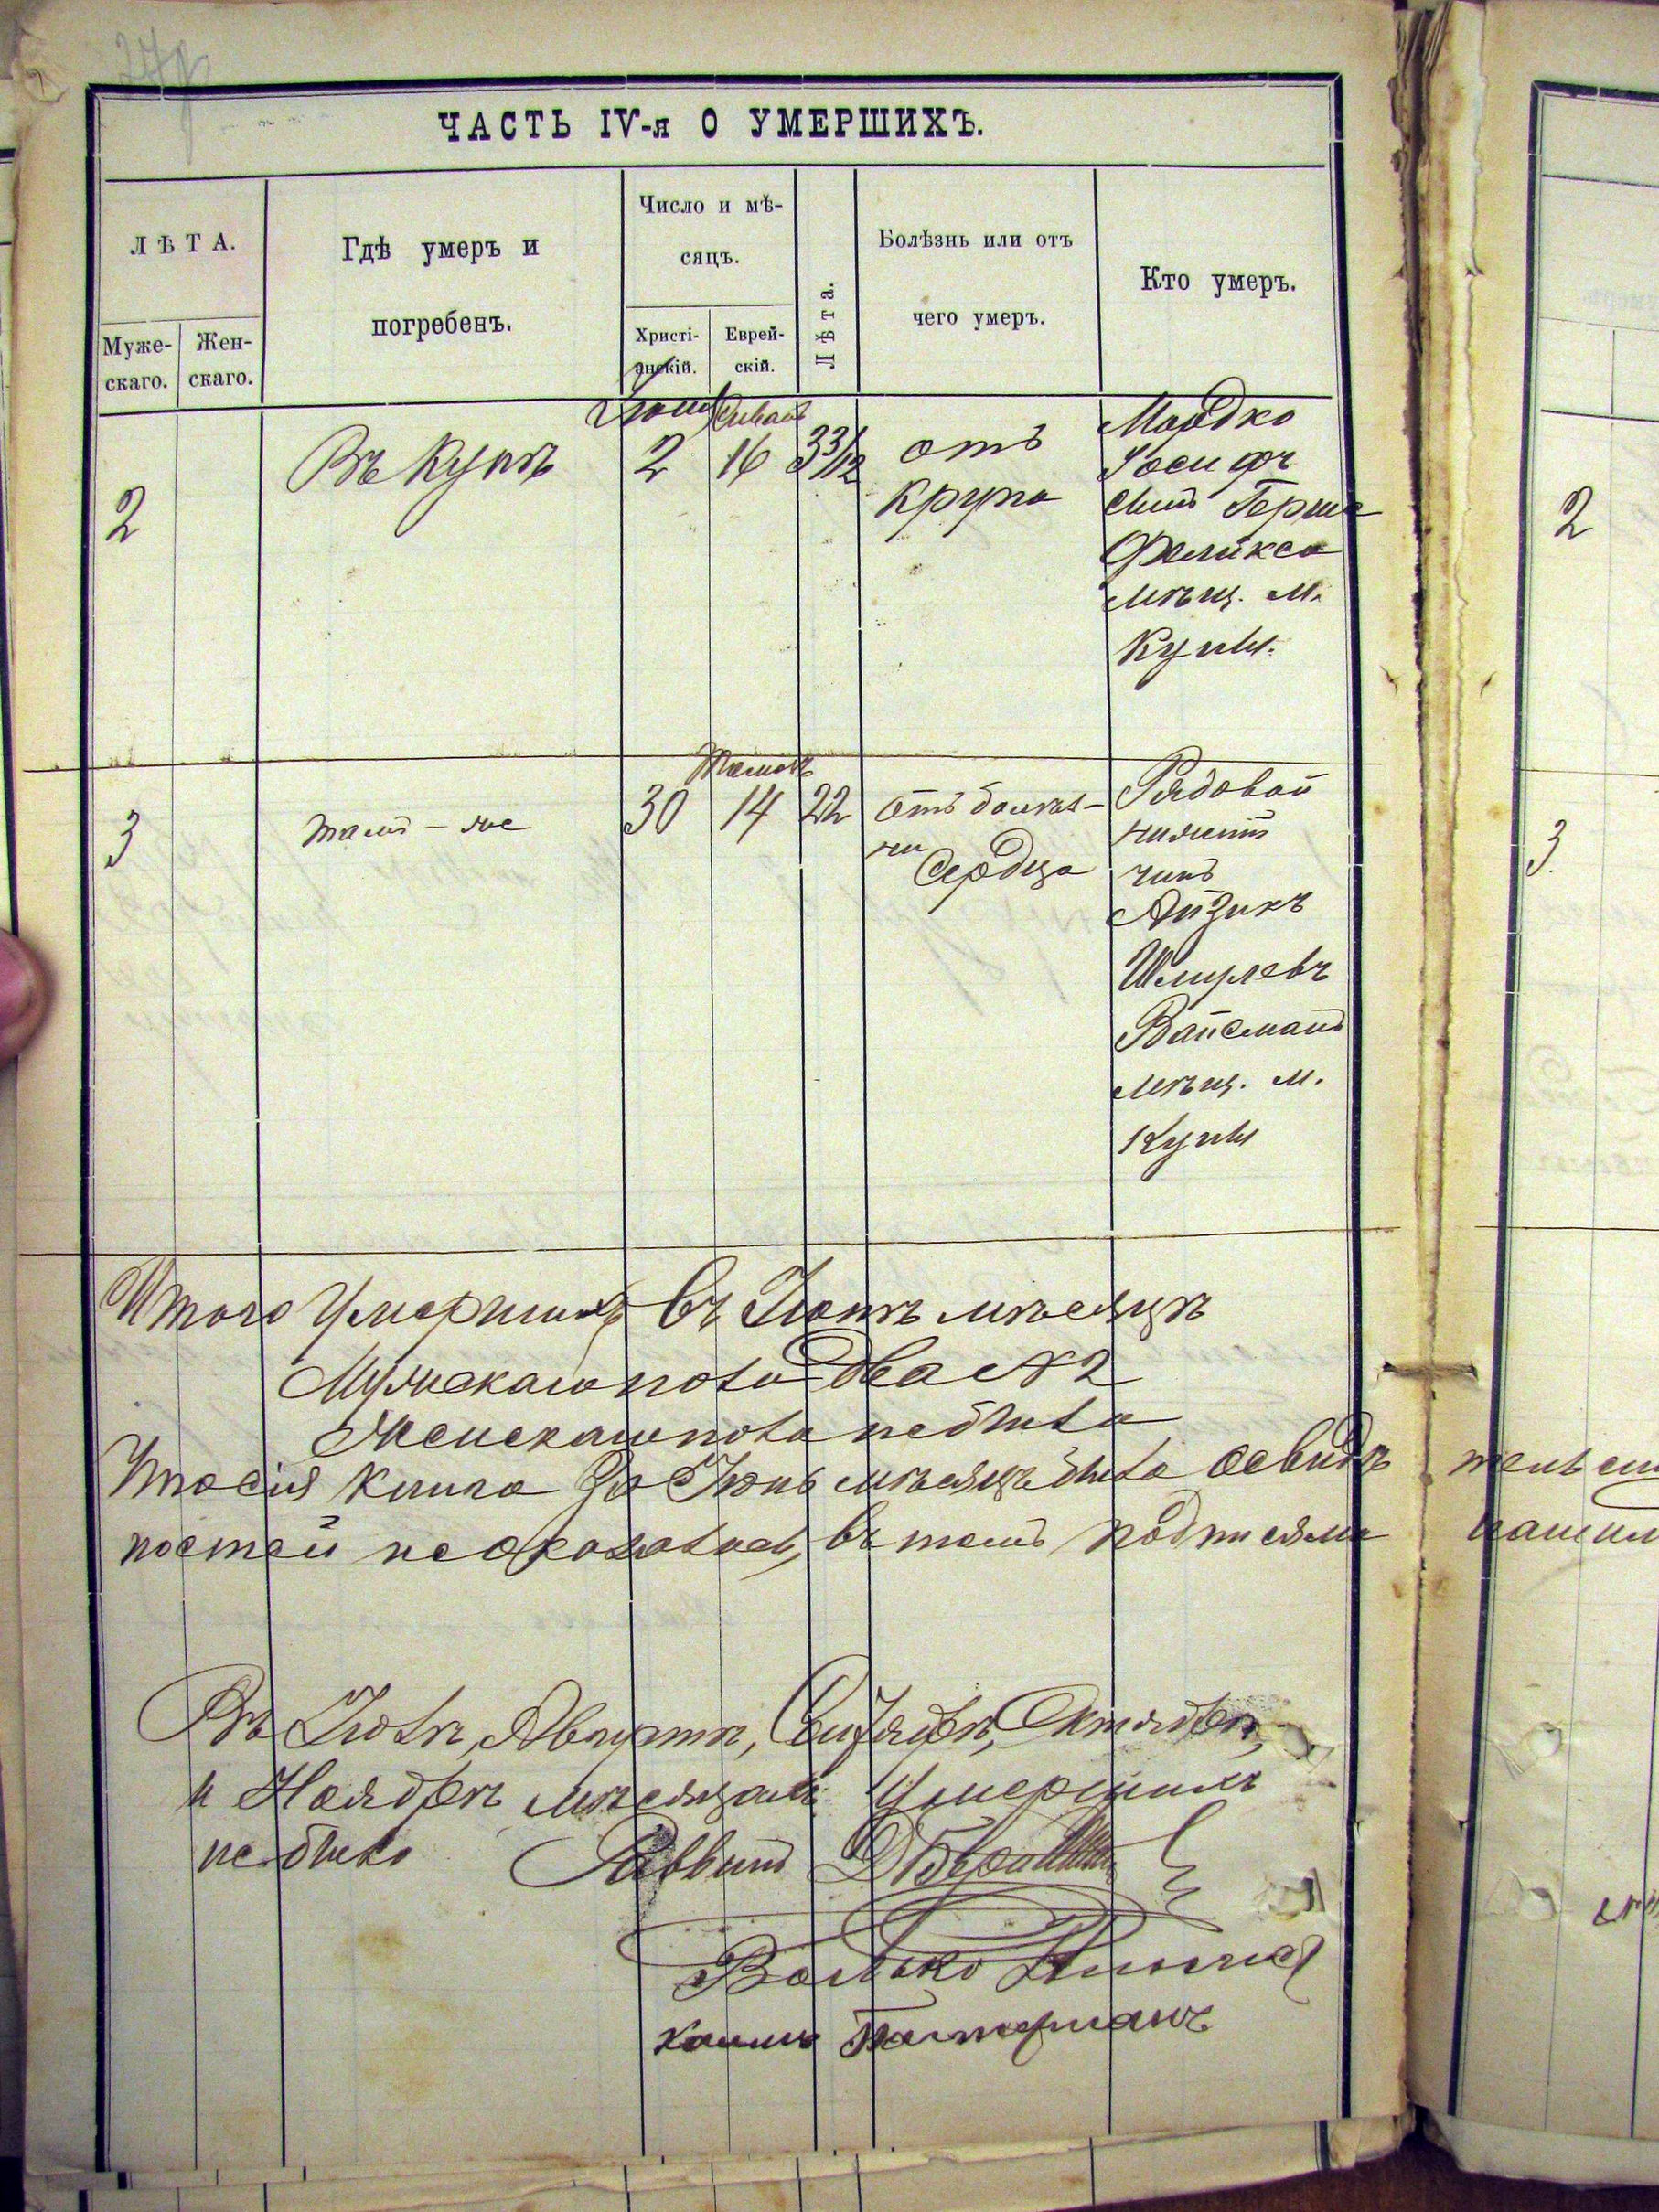 ЧАСТЬ IV-я О УМЕРШИХЪ.
ЛѢТА.
Муже-
скаго.
Жен-
скаго.
Гдѣ умеръ и
погребенъ.
Число и мѣ-
сяцъ.
Христі-
анскій.
Еврей-
скій.
Лѣта.
Болѣзнь или отъ
чего умеръ.
Кто умеръ.
2
Въ Купѣ
Іюня
2
Сивана
16
3 3/12
отъ
крупа
Мордко
Іосифъ
сынъ Герша
Феликса
мѣщ. м.
Купы.
2
3
тамъ-же
30
Тамозъ
14
22
отъ болѣз-
ни
сердца
Рядовой
нижній
чинъ
Айзикъ
Шмулевъ
Вайсманъ
мѣщ. м.
Купы
3.
Итого умершихъ въ Іюнѣ мѣсяцѣ
Мужескаго пола два № 2
Женскаго пола небыло
Что сія книга за Іюнь мѣсяцъ была освидѣ
ностей неоказалось, въ томъ подписями
Въ Іюлѣ, Августѣ, Сентябрѣ, Октябрѣ,
и Ноябрѣ мѣсяцахъ умершихъ
небыло Раввинъ
Волько